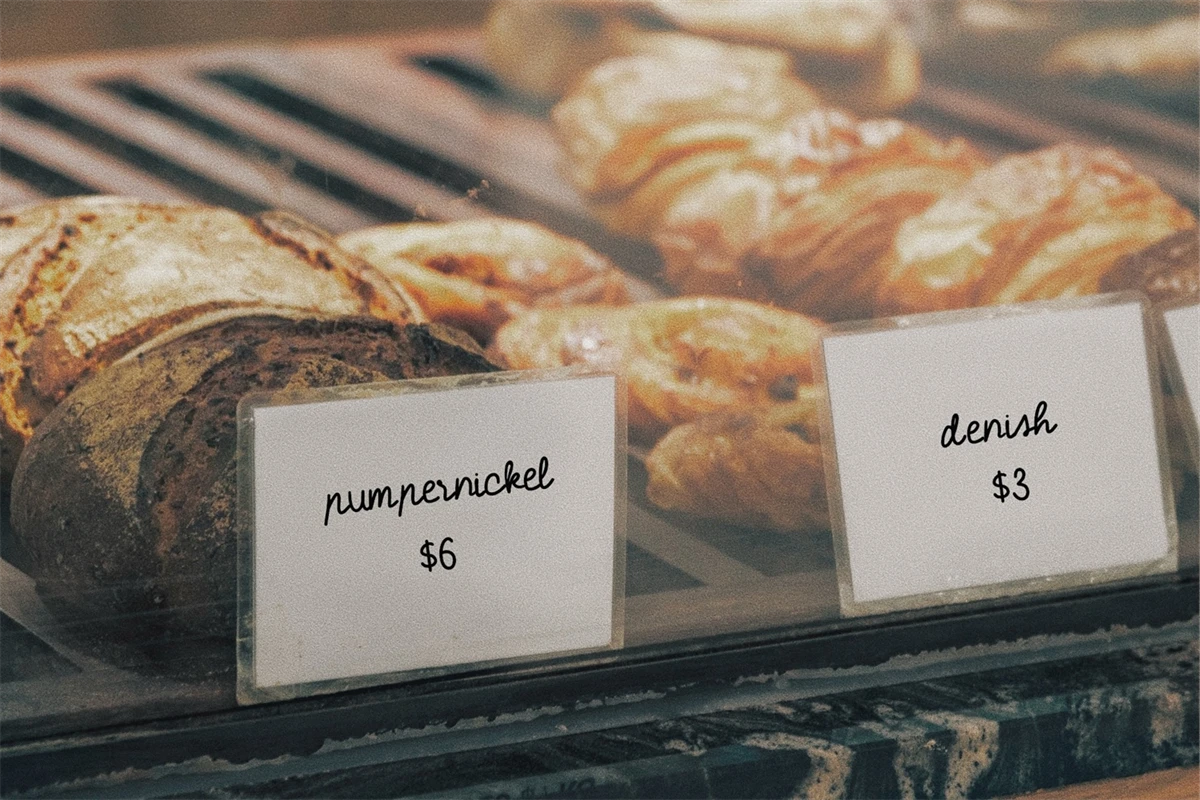 pumpernickel
$6
denish
$3